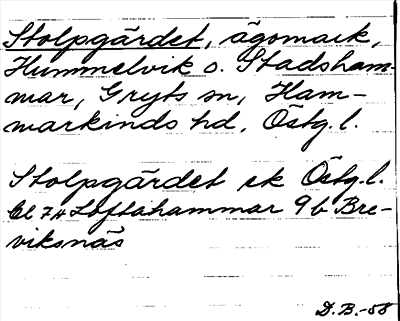 Stolpgärdet, ägomark,
Hummelvik o. Stadsham-
mar, Gryts sn, Ham-
markinds hd, Östg. l.
Stolpgärdet ek Östg. l.
bl 74 Loftahammar 9b Bre-
viksnäs
D.B.-58